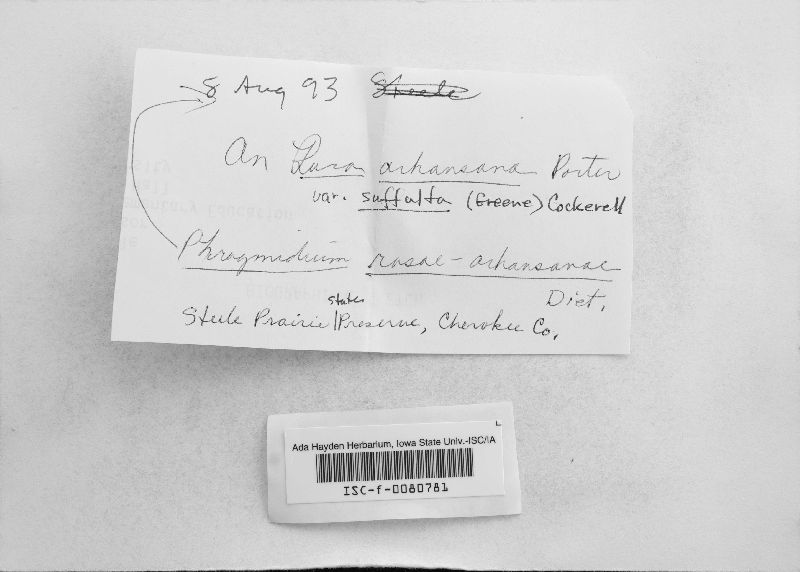 8 Aug 93 Steele
On Rosa arkansana Porter
var. suffulta (Greene) Cockerell
Phragmidium rosae-arkansanae
Diet.
Steele Prairie State Preserve, Cherokee Co.
Ada Hayden Herbarium, Iowa State Univ.-ISC/IA
ISC-f-0080781